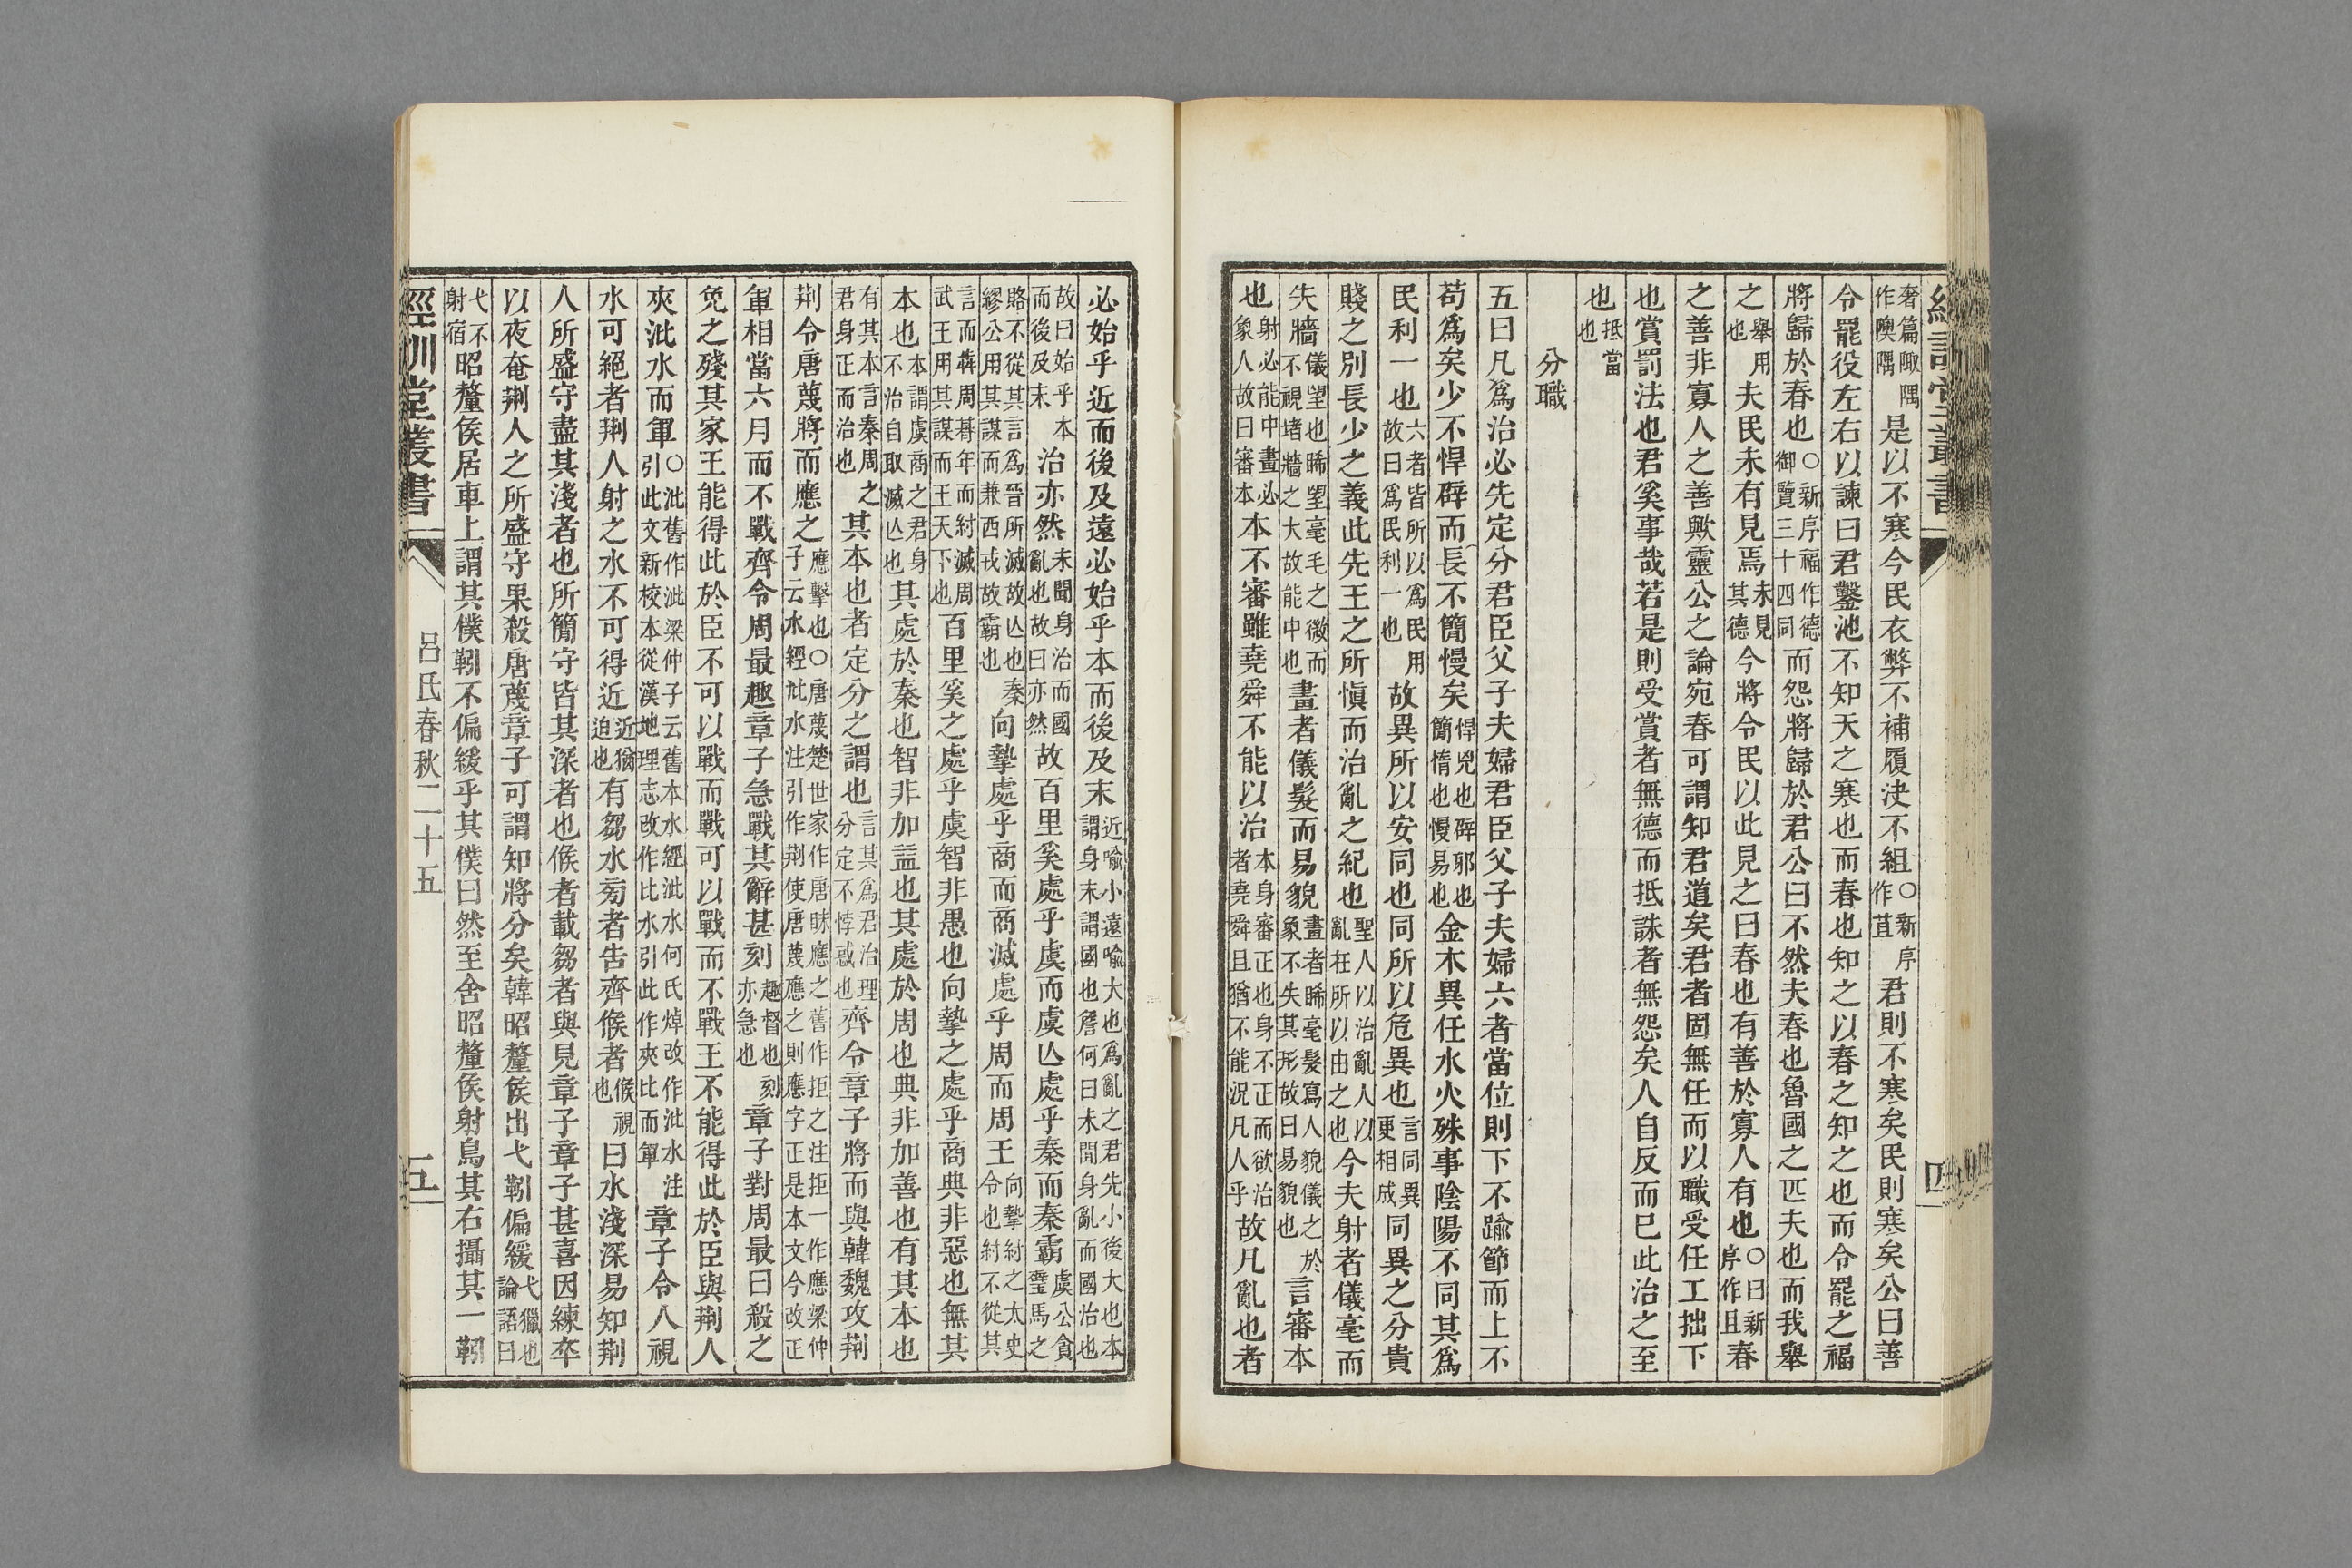 奢篇陬隅作隩隅是以不寒今民衣弊不補履決不組○新序作苴君則不寒矣民則寒矣公曰善
令罷役左右以諫曰君鑿池不知天之寒也而春也知之以春之知之也而令罷之福
將歸於春也○新序福作德御覽三十四同而怨將歸於君公曰不然夫春也魯國之匹夫也而我舉
之舉用也夫民未有見焉未見其德今將令民以此見之曰春也有善於寡人有也○曰新序作且春
之善非寡人之善歟靈公之論宛春可謂知君道矣君者固無任而以職受任工拙下
也賞罰法也君奚事哉若是則受賞者無德而抵誅者無怨矣人自反而已此治之至
也抵當也
分職
五曰凡爲治必先定分君臣父子夫婦君臣父子夫婦六者當位則下不踰節而上不
苟爲矣少不悍辟而長不簡慢矣悍兇也辟邪也簡惰也慢易也金木異任水火殊事陰陽不同其爲
民利一也六者皆所以爲民用故曰爲民利一也故異所以安同也同所以危異也言同異更相成同異之分貴
賤之別長少之義此先王之所愼而治亂之紀也聖人以治亂人以亂在所以由之也今夫射者儀毫而
失牆儀望也睎望毫毛之微而不視堵牆之大故能中也畫者儀髮而易貌畫者睎毫髮寫人貌儀之於象不失其形故曰易貌也言審本
也射必能中畫必象人故曰審本本不審雖堯舜不能以治本身審正也身不正而欲治者堯舜且猶不能況凡人乎故凡亂也者
必始乎近而後及遠必始乎本而後及末近喻小遠喻大也爲亂之君先小後大也本謂身末謂國也詹何曰未聞身亂而國治也
故曰始乎本而後及末治亦然未聞身治而國亂也故曰亦然故百里奚處乎虞而虞亾處乎秦而秦霸虞公貪璧馬之
賂不從其言爲晉所滅故亾也秦繆公用其謀而兼西戎故霸也向摯處乎商而商滅處乎周而周王向摯紂之太史令也紂不從其
言而犇周朞年而紂滅周武王用其謀而王天下也百里奚之處乎虞智非愚也向摯之處乎商典非惡也無其
本也本謂虞商之君身不治自取滅亾也其處於秦也智非加益也其處於周也典非加善也有其本也
有其本言秦周之君身正而治也其本也者定分之謂也言其爲君治理分定不悖惑也齊令章子將而與韓魏攻荆
荆令唐蔑將而應之應擊也○唐蔑楚世家作唐昧應之舊作拒之注拒一作應梁仲子云水經沘水注引作荆使唐蔑應之則應字正是本文今改正
軍相當六月而不戰齊令周最趣章子急戰其辭甚刻趣督也刻亦急也章子對周最曰殺之
免之殘其家王能得此於臣不可以戰而戰可以戰而不戰王不能得此於臣與荆人
夾沘水而軍○沘舊作泚梁仲子云舊本水經沘水何氏焯改作泚水注引此文新校本從漢地理志改作比水引此作夾比而軍章子令人視
水可絕者荆人射之水不可得近近猶迫也有芻水㫄者告齊候者候視也曰水淺深易知荆
人所盛守盡其淺者也所簡守皆其深者也候者載芻者與見章子章子甚喜因練卒
以夜奄荆人之所盛守果殺唐蔑章子可謂知將分矣韓昭釐侯出弋靷偏緩弋獵也論語曰
弋不射宿昭釐侯居車上謂其僕靷不偏緩乎其僕曰然至舍昭釐侯射鳥其右攝其一靷
經訓堂叢書
呂氏春秋二十五
五